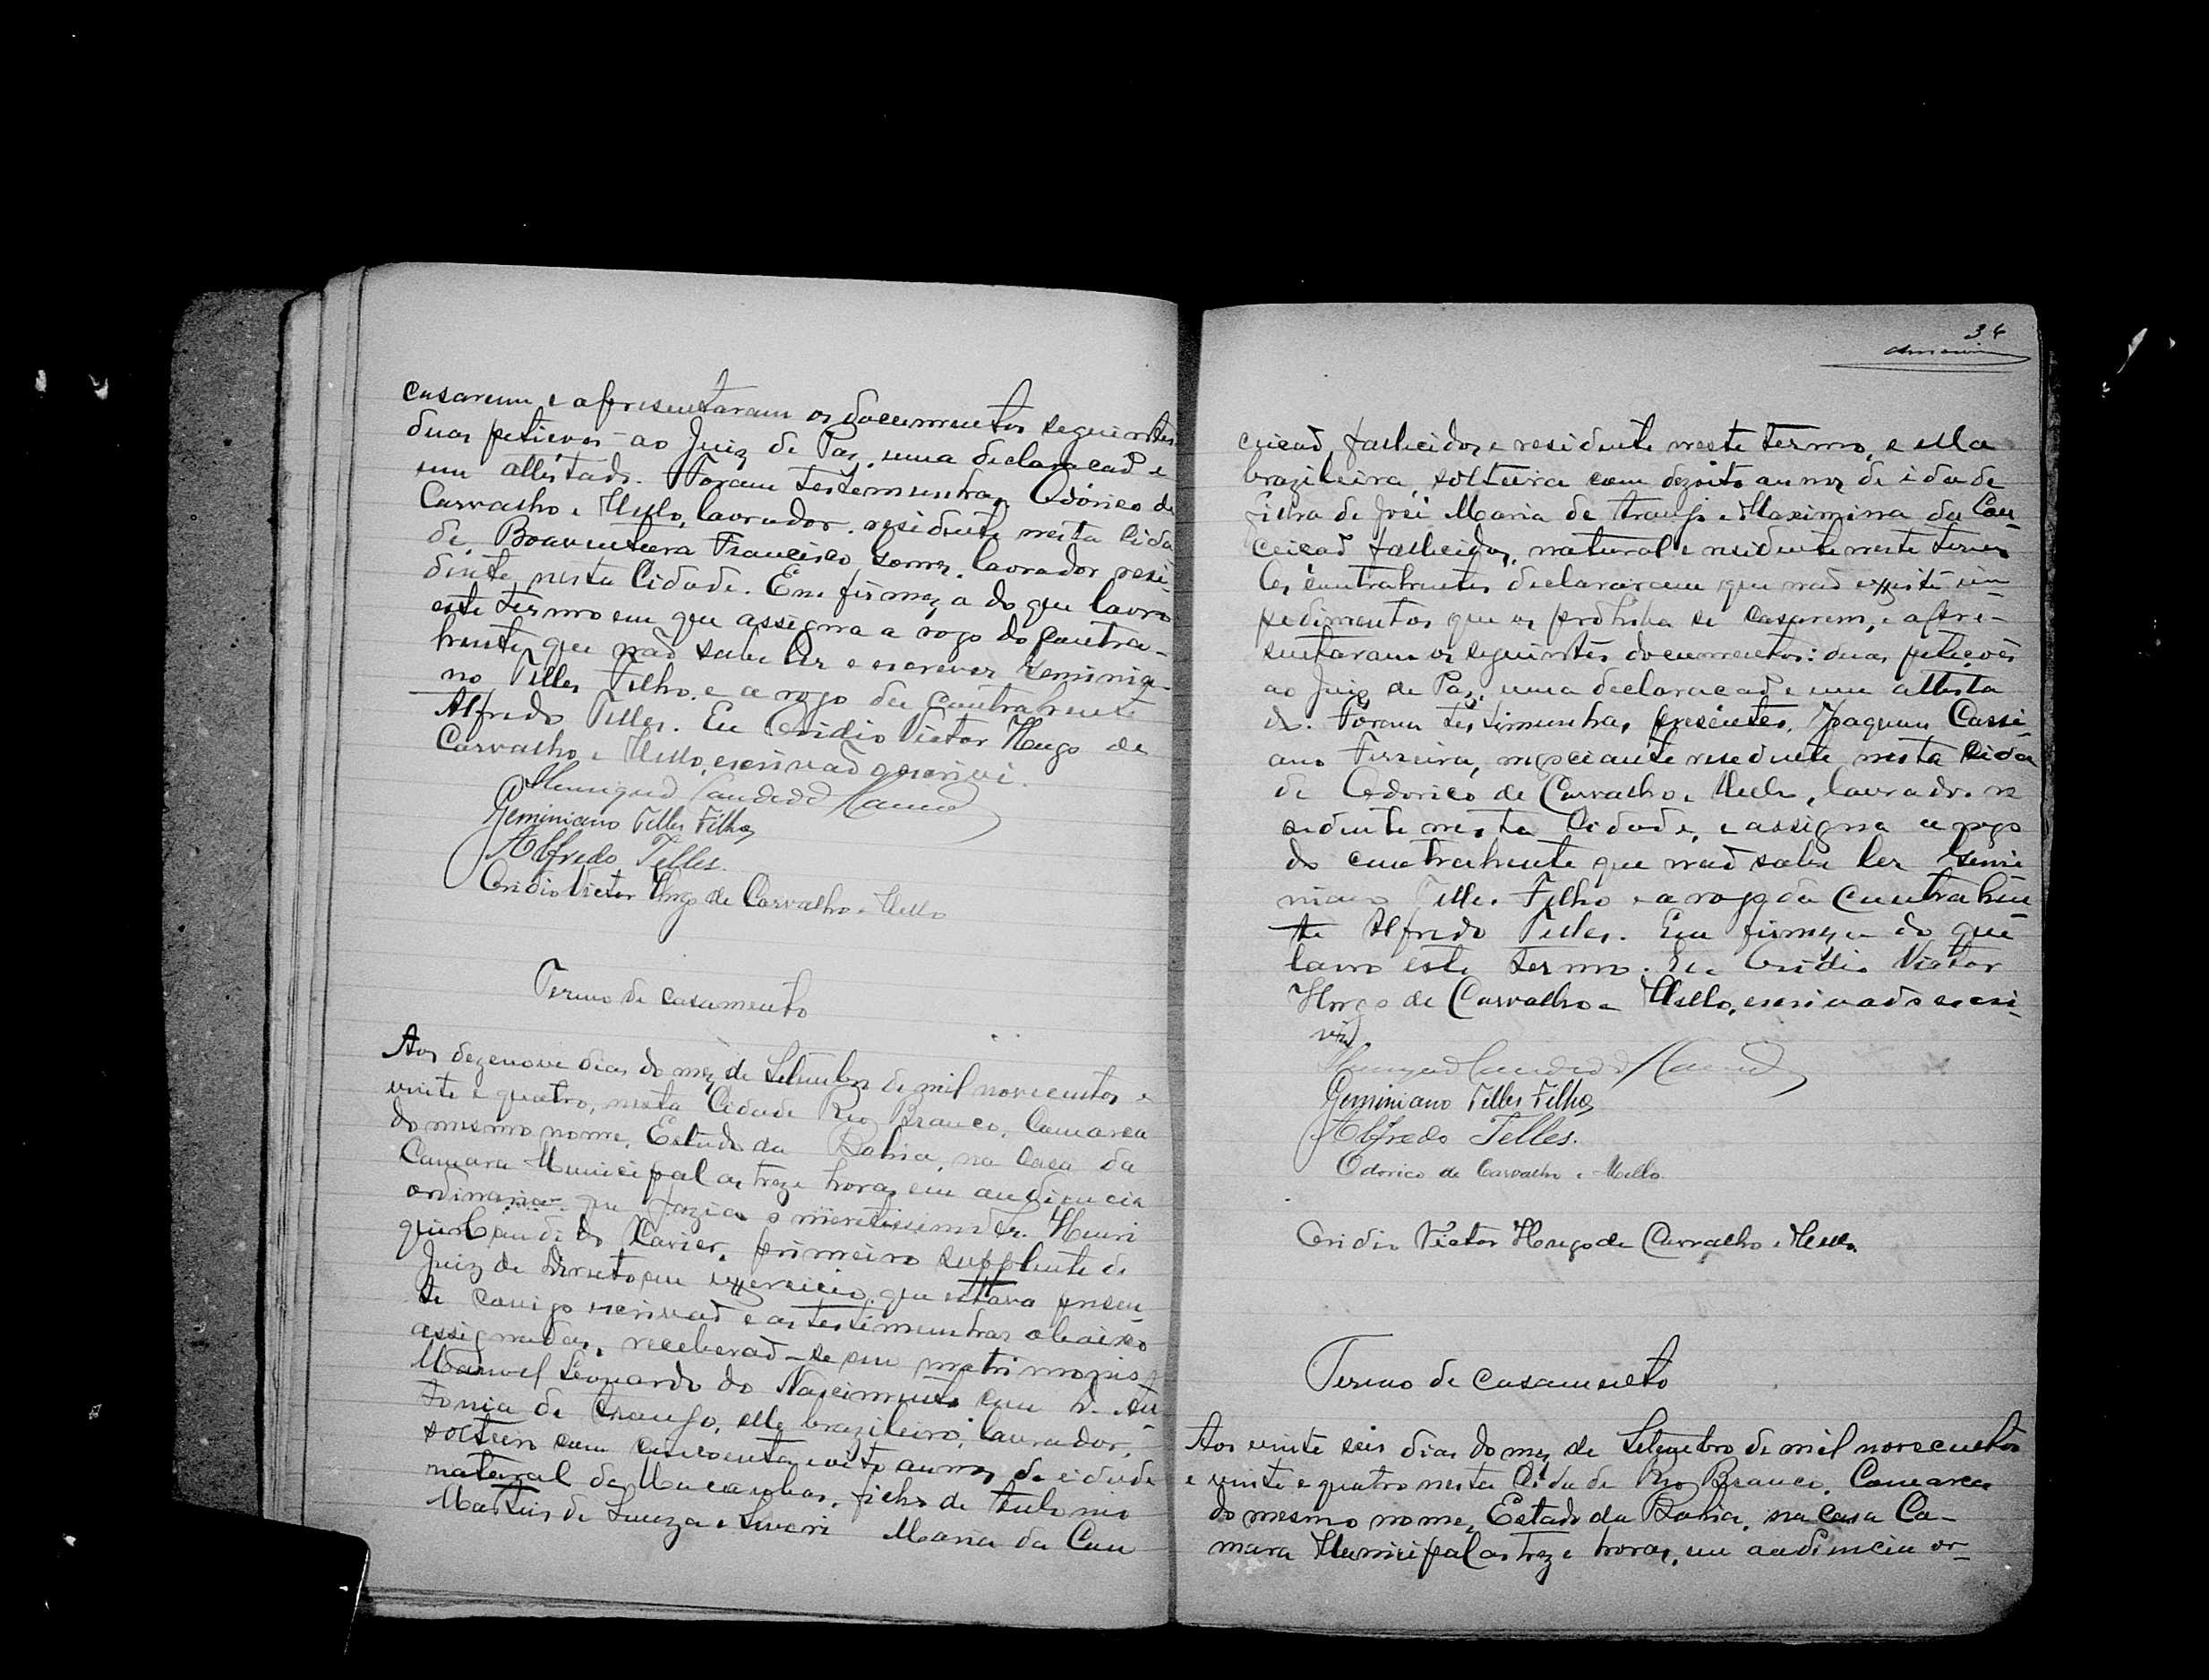 casarem, e apresentaram os documentos seguintes
duas petições ao Juiz de Paz, uma declaração e
um attestado. Foram testemunhas Odorico de
Carvalho e Mello, lavrador, residente nesta Cida
de, Boaventura Francisco Gomes, lavrador resi-
dente nesta Cidade. Em firmeza do que lavro
este termo em que assigna a rogo do contra-
hente, que não sabe ler e escrever Geminia-
no Telles Filho, e a rogo da contrahente
Alfredo Telles. Eu Ovidio Victor Hugo de
Carvalho e Mello, escrivão o escrivi.
Geminiano Telles Filho
Alfredo Telles.
Ovidio Victor Hugo de Carvalho e Mello
Termo de casamento
Aos dezenove dias do mez de Setembro de mil novecentos e
vinte e quatro, nesta Cidade Rio Branco, Comarca
do mesmo nome, Estado da Bahia, na casa da
Camara Municipal as treze horas em audiencia
ordinaria que fazia o meretissimo Dr. Henri
que Candido Xavier, primeiro supplente de
Juiz de Direito em exxercicio, que estava presen
te comigo escrivão e as testemunhas abaixo
assignadas, receberão-se em matrimonio
Manoel Leonardo do Nascimento com D. An
tonia de Araujo, elle brazileiro, lavrador,
solteiro com cincoenta e oito annos de idade
natural de Macaubas, filho de Antonio
Martins de Souza e Maria da Con
34
ceicão, fallecidos e residente neste termo, e ella
brazileira, solteira com dezoito annos de idade
filha de José Maria de Araujo e Maximina da Con-
ceicão fallecidos, natural e residente neste termo
Os contrahentes declararam que não exxiste im-
pedimentos que os prohiba se casarem, e apre-
sentaram os seguintes documentos: duas petições
ao Juiz de Paz, uma declaracão e um attesta
do. Foram testimunhas presentes, Joaquim Cassi-
ano Ferreira, negociante residente nesta Cida
de Odorico de Carvalho e Mello, lavrador re
sidente nesta Cidade, e assigna a rogo
do contrahente que não sabe ler Gemi
niano Telles Filho e a rogo da contrahen-
te Alfredo Telles. Em firmeza do que
lavro este termo. Eu Ovidio Victor
Hugo de Carvalho e Mello, escrivão o escri-
vi
Geminiano Telles Filho
Alfredo Telles.
Odorico de Carvalho e Mello
Ovidio Victor Hugo de Carvalho e Mello
Termo de casamento
Aos vinte seis dias do mez de Setembro de mil novecentos
e vinte e quatro nesta Cidade Rio Branco, Comarca
do mesmo nome, Estado da Bahia, na casa Ca-
mara Municipal as treze horas, em audiencia or-